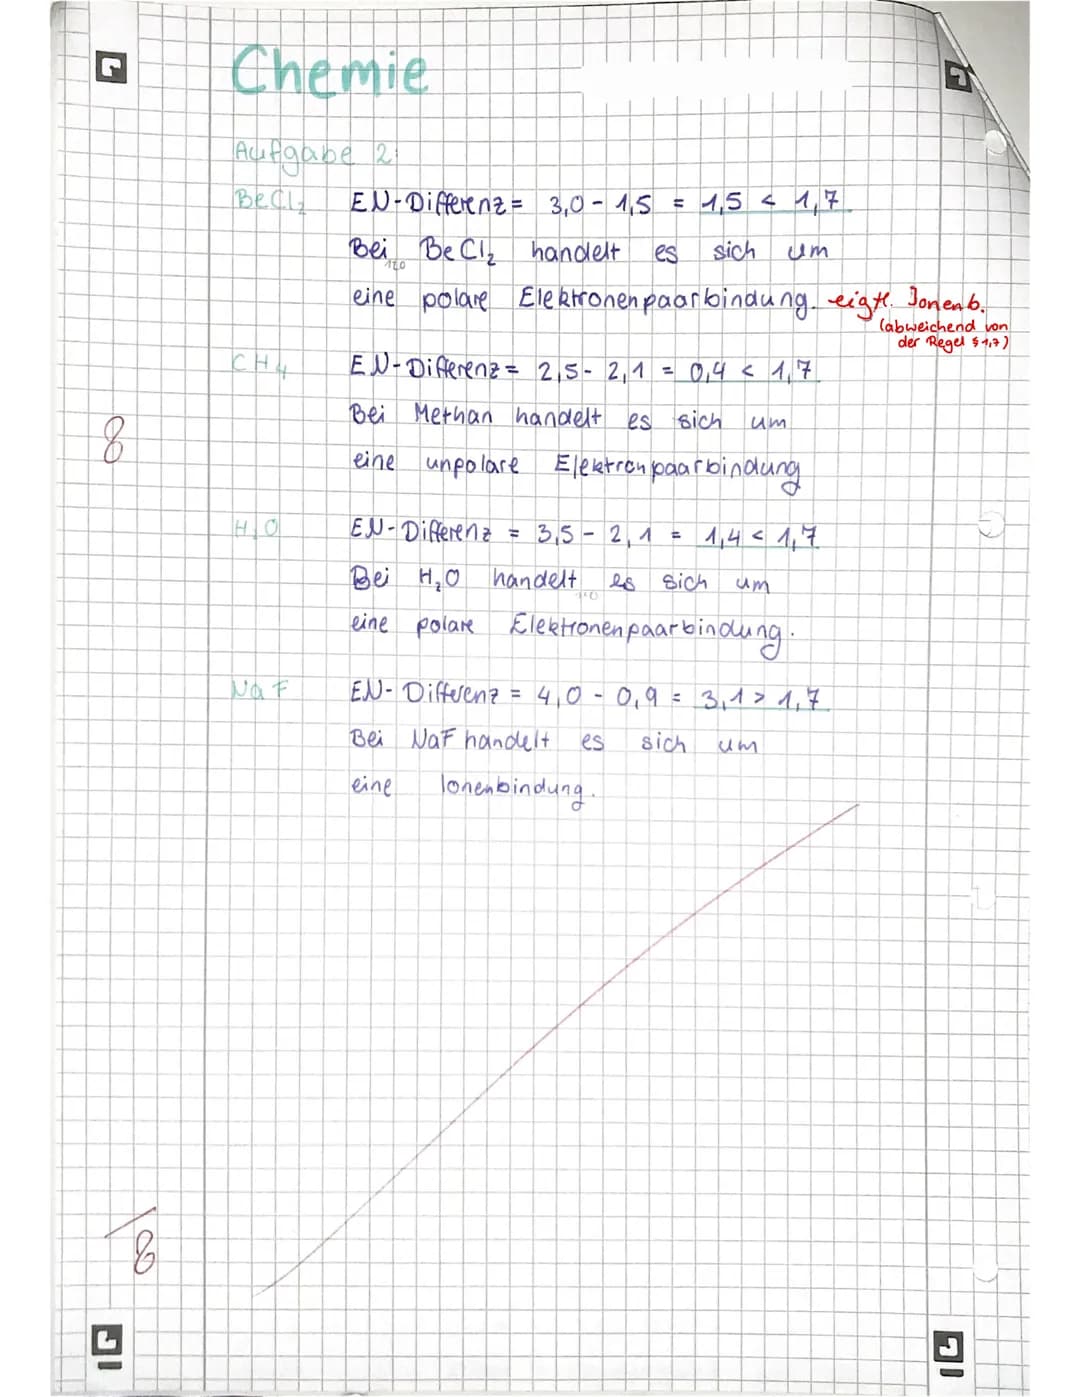 Chemie
Aufgabe 2:
BeCl₂ EN-Differenz = 3,0 - 1,5 = 1,5 < 1,7
Bei BeCl₂ handelt es sich um
eine polare Elektronenpaarbindung. eigtl. Ionenb.
(abweichend von
der Regel § 1,7)
CH₄ EN-Differenz = 2,5 - 2,1 = 0,4 < 1,7
Bei Methan handelt es sich um
8
eine unpolare Elektronpaarbindung
H₂O EN-Differenz = 3,5 - 2,1 = 1,4 < 1,7
Bei H₂O handelt es sich um
eine polare Elektronenpaarbindung.
NaF EN-Differenz = 4,0 - 0,9 = 3,1 > 1,7
Bei NaF handelt es sich um
eine Ionenbindung.
8